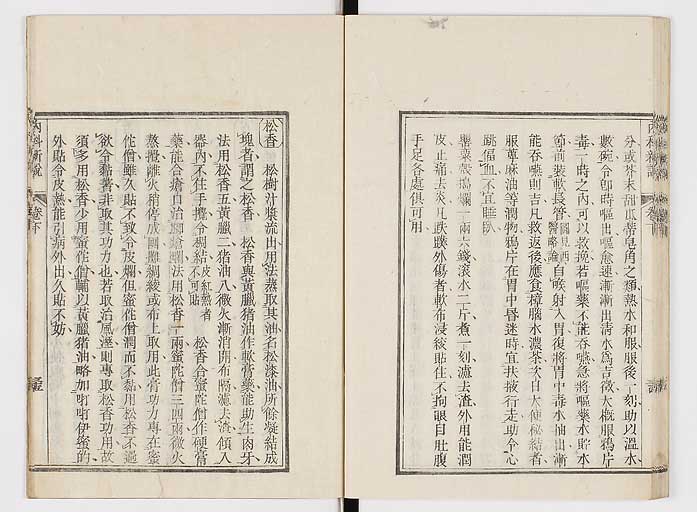 分或芥末甜瓜蒂皂角之類熱水和服服後一刻助以溫水
數碗令卽時嘔出嘔愈速漸漸出清水爲吉徵大槪服鴉片
毒一時之內可以救挽若嘔藥不能吞嚥急將嘔藥水貯水
節前裝軟長管圖見西醫略論自喉射入胃復將胃中毒水抽出漸
能吞嚥則吉凡救返後應食樟腦水濃茶次日大便秘結者
服蓖麻油等潤物鴉片在胃中昏迷時宜扶掖行走助令心
跳偪血不宜睡臥
罌粟殼搗爛一兩六錢滾水二斤煮一刻濾去渣外用能潤
皮止痛去炎凡跌撲外傷者軟布浸絞貼住不拘眼目肚腹
手足各處俱可用
松香　松樹汁漿流出用法蒸取其油名松漆油所餘凝結成
塊者謂之松香　松香與黃臘猪油作軟膏藥能助生肉牙
法用松香五黃臘二猪油八微火漸消開布隔濾去渣傾入
器內不住手攪令稠結皮紅熱者不可貼　松香合蜜陀僧作硬膏
藥能合瘡口治腳瘡爛法用松香一兩蜜陀僧三四兩微火
熬攪離火稍停成團攤綢綾或布上取用此膏功力專在蜜
陀僧雖久貼不致令皮爛但蜜陀僧潤而不黏用松香不過
欲令黏著非取其功力也若取治風溼則專取松香功用故
須多用松香少用蜜陀僧輔以黃臘猪油略加咁咁伊蜜的
外貼令皮熱能引病外出久貼不妨
內科新說
卷下